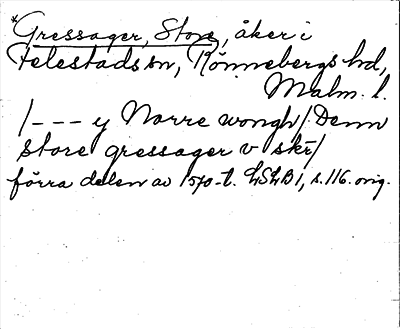 *Gressager, Store, åker i
Felestads sn, Rönnebergs hd,
Malm. l.
/--- y Norre wongh/ Denn
store gressager v skr/
förra delen av 1570-t. LSLB 1, s. 116. orig.